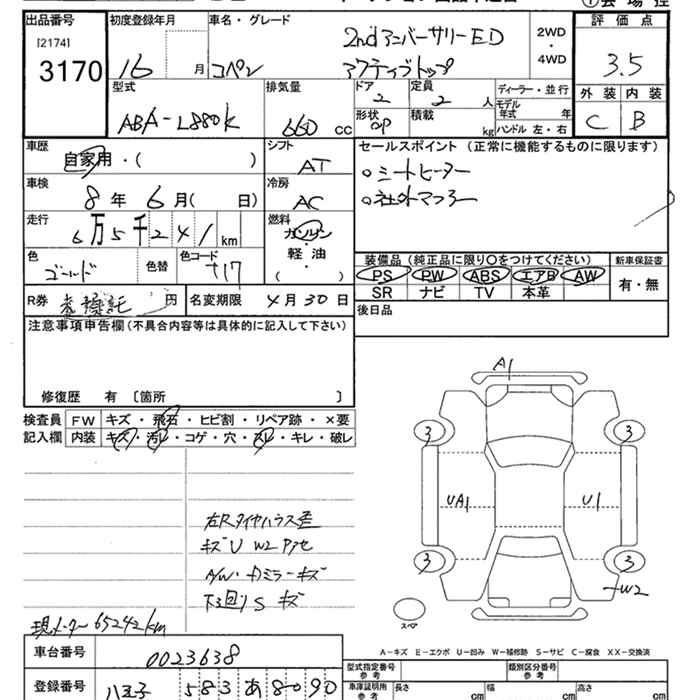 出品番号
[2174]
3170
初度登録年月
16 月
車名・グレード
コペン
2nd アニバーサリーED
アクティブトップ
2WD
・
4WD
評価点
3.5
外装 内装
C B
型式
ABA-L880K
排気量
660 cc
ドア
2
定員
2 人
形状
OP
積載
kg
ディーラー・並行
モデル
年式 年
ハンドル 左・右
車歴
自家用・( )
シフト
AT
車検
8 年 6 月( 日)
冷房
AC
走行
6万5千241 km
燃料
ガソリン
・
軽油
・
( )
色
ゴールド
色替
色コード
T17
R券 未預託 円
名変期限 4月30日
セールスポイント (正常に機能するものに限ります)
○シートヒーター
○社外マフラー
装備品 (純正品に限り○をつけてください)
PS PW ABS エアB AW
SR ナビ TV 本革
新車保証書
有・無
後日品
注意事項申告欄(不具合内容等は具体的に記入して下さい)
修復歴 有 〔箇所 〕
検査員
記入欄
FW キズ・飛石・ヒビ割・リペア跡・×要
内装 キズ・汚レ・コゲ・穴・スレ・キレ・破レ
右Rタイヤハウス歪
キズU W2 Pアセ
A/W・ドミラーキズ
下回りS キズ
現メーター65242km
車台番号
0023638
登録番号
八王子 583 あ 8090
A1
3 3
UA1 U1
3 3
W2
スペア
A-キズ E-エクボ U-凹み W-補修跡 S-サビ C-腐食 XX-交換済
型式指定番号
参考
類別区分番号
参考
車庫証明用
参考
長さ cm
幅 cm
高さ cm